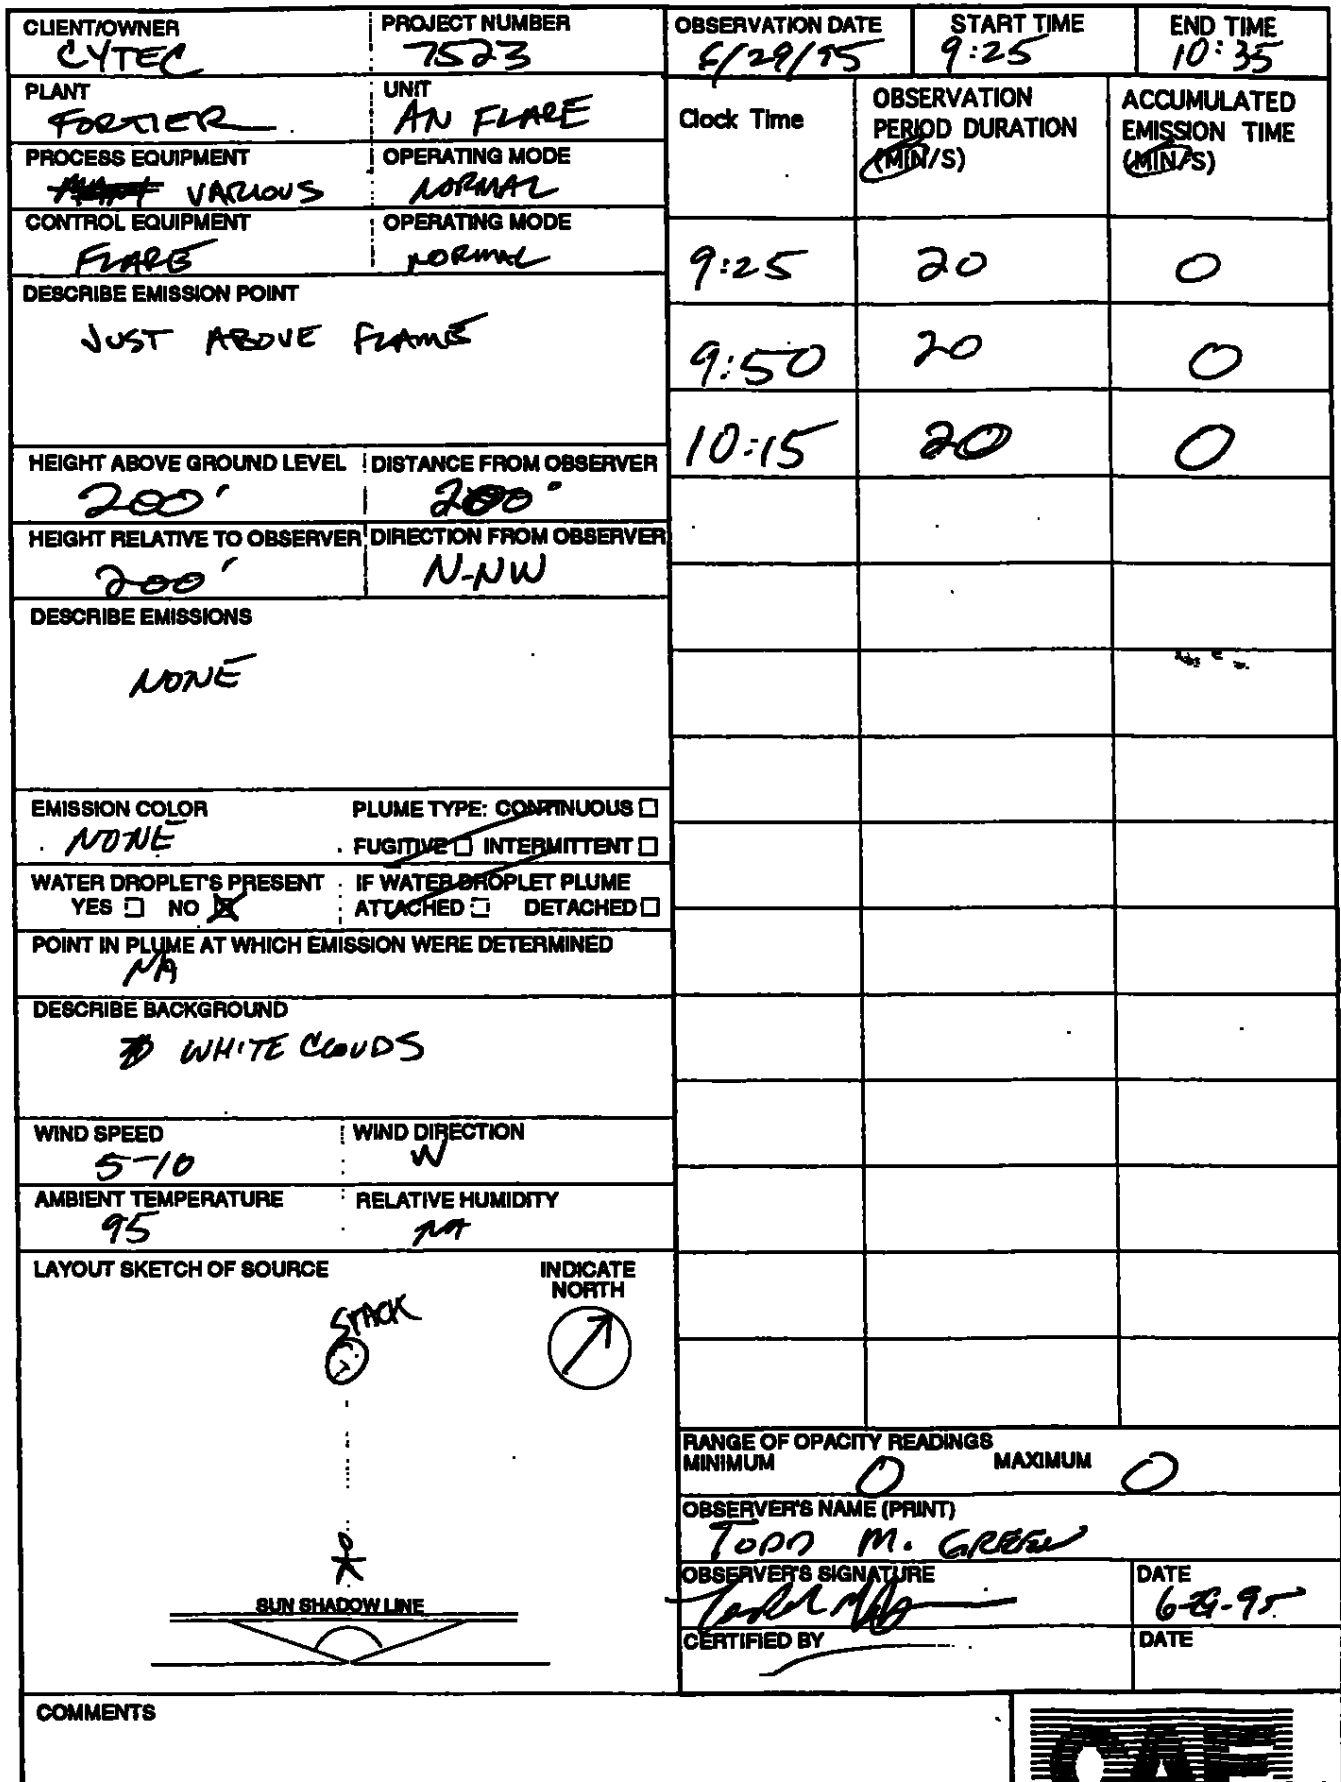 CLIENT/OWNER
CYTEC
PROJECT NUMBER
7523
PLANT
FORTIER
UNIT
AN FLARE
PROCESS EQUIPMENT
VARIOUS
OPERATING MODE
NORMAL
CONTROL EQUIPMENT
FLARE
OPERATING MODE
NORMAL
DESCRIBE EMISSION POINT
JUST ABOVE FLAME
HEIGHT ABOVE GROUND LEVEL
200'
DISTANCE FROM OBSERVER
200'
HEIGHT RELATIVE TO OBSERVER
200'
DIRECTION FROM OBSERVER
N-NW
DESCRIBE EMISSIONS
NONE
EMISSION COLOR
NONE
PLUME TYPE: CONTINUOUS ☐
FUGITIVE ☐ INTERMITTENT ☐
WATER DROPLET'S PRESENT
YES ☐ NO ☒
IF WATER DROPLET PLUME
ATTACHED ☐ DETACHED ☐
POINT IN PLUME AT WHICH EMISSION WERE DETERMINED
NA
DESCRIBE BACKGROUND
WHITE CLOUDS
WIND SPEED
5-10
WIND DIRECTION
W
AMBIENT TEMPERATURE
95
RELATIVE HUMIDITY
NA
LAYOUT SKETCH OF SOURCE
INDICATE
NORTH
STACK
SUN SHADOW LINE
OBSERVATION DATE
6/29/95
START TIME
9:25
END TIME
10:35
Clock Time
OBSERVATION
PERIOD DURATION
(MIN/S)
ACCUMULATED
EMISSION TIME
(MIN/S)
9:25 20 0
9:50 20 0
10:15 20 0
RANGE OF OPACITY READINGS
MINIMUM 0 MAXIMUM 0
OBSERVER'S NAME (PRINT)
TODD M. GREEN
OBSERVER'S SIGNATURE
DATE
6-29-95
CERTIFIED BY
DATE
COMMENTS